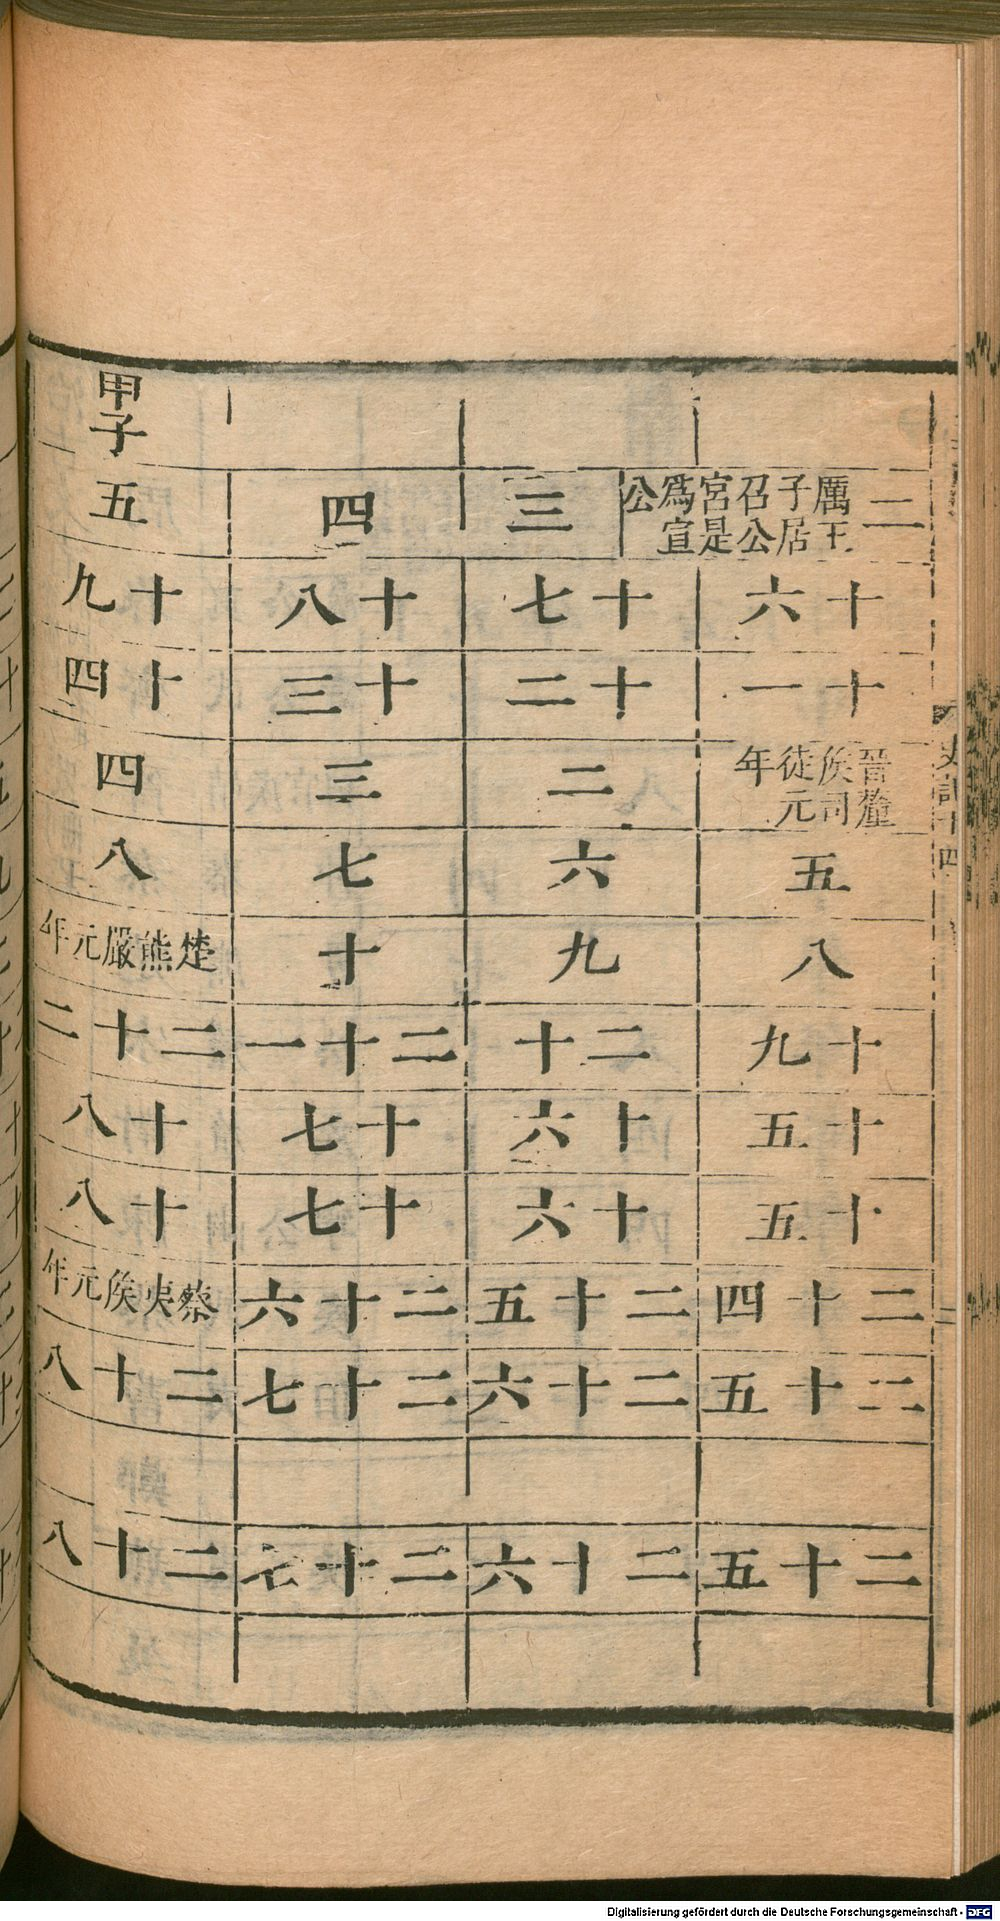 二
厲王子居召公宮是爲宣公
十六
十一
晉釐侯司徒元年
五
八
十九
十五
十五
二十四
二十五
二十五
三
十七
十二
二
六
九
二十
十六
十六
二十五
二十六
二十六
四
十八
十三
三
七
十
二十一
十七
十七
二十六
二十七
二十七
甲子
五
十九
十四
四
八
楚熊嚴元年
二十二
十八
十八
蔡夷侯元年
二十八
二十八
史記十四
Digitalisierung gefördert durch die Deutsche Forschungsgemeinschaft - DFG